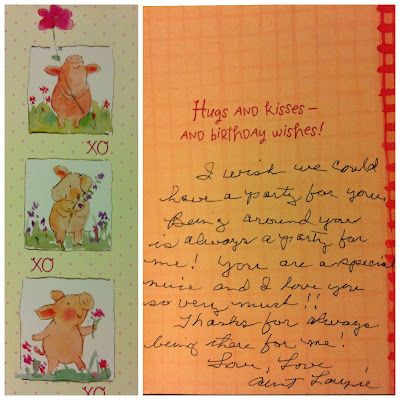 XO
XO
XO
Hugs and kisses—
and birthday wishes!
I wish we could
have a party for you.
Being around you
is always a party for
me! You are a special
niece and I love you
so very much!!
Thanks for always
being there for me!
Love, Love
Aunt Laurie